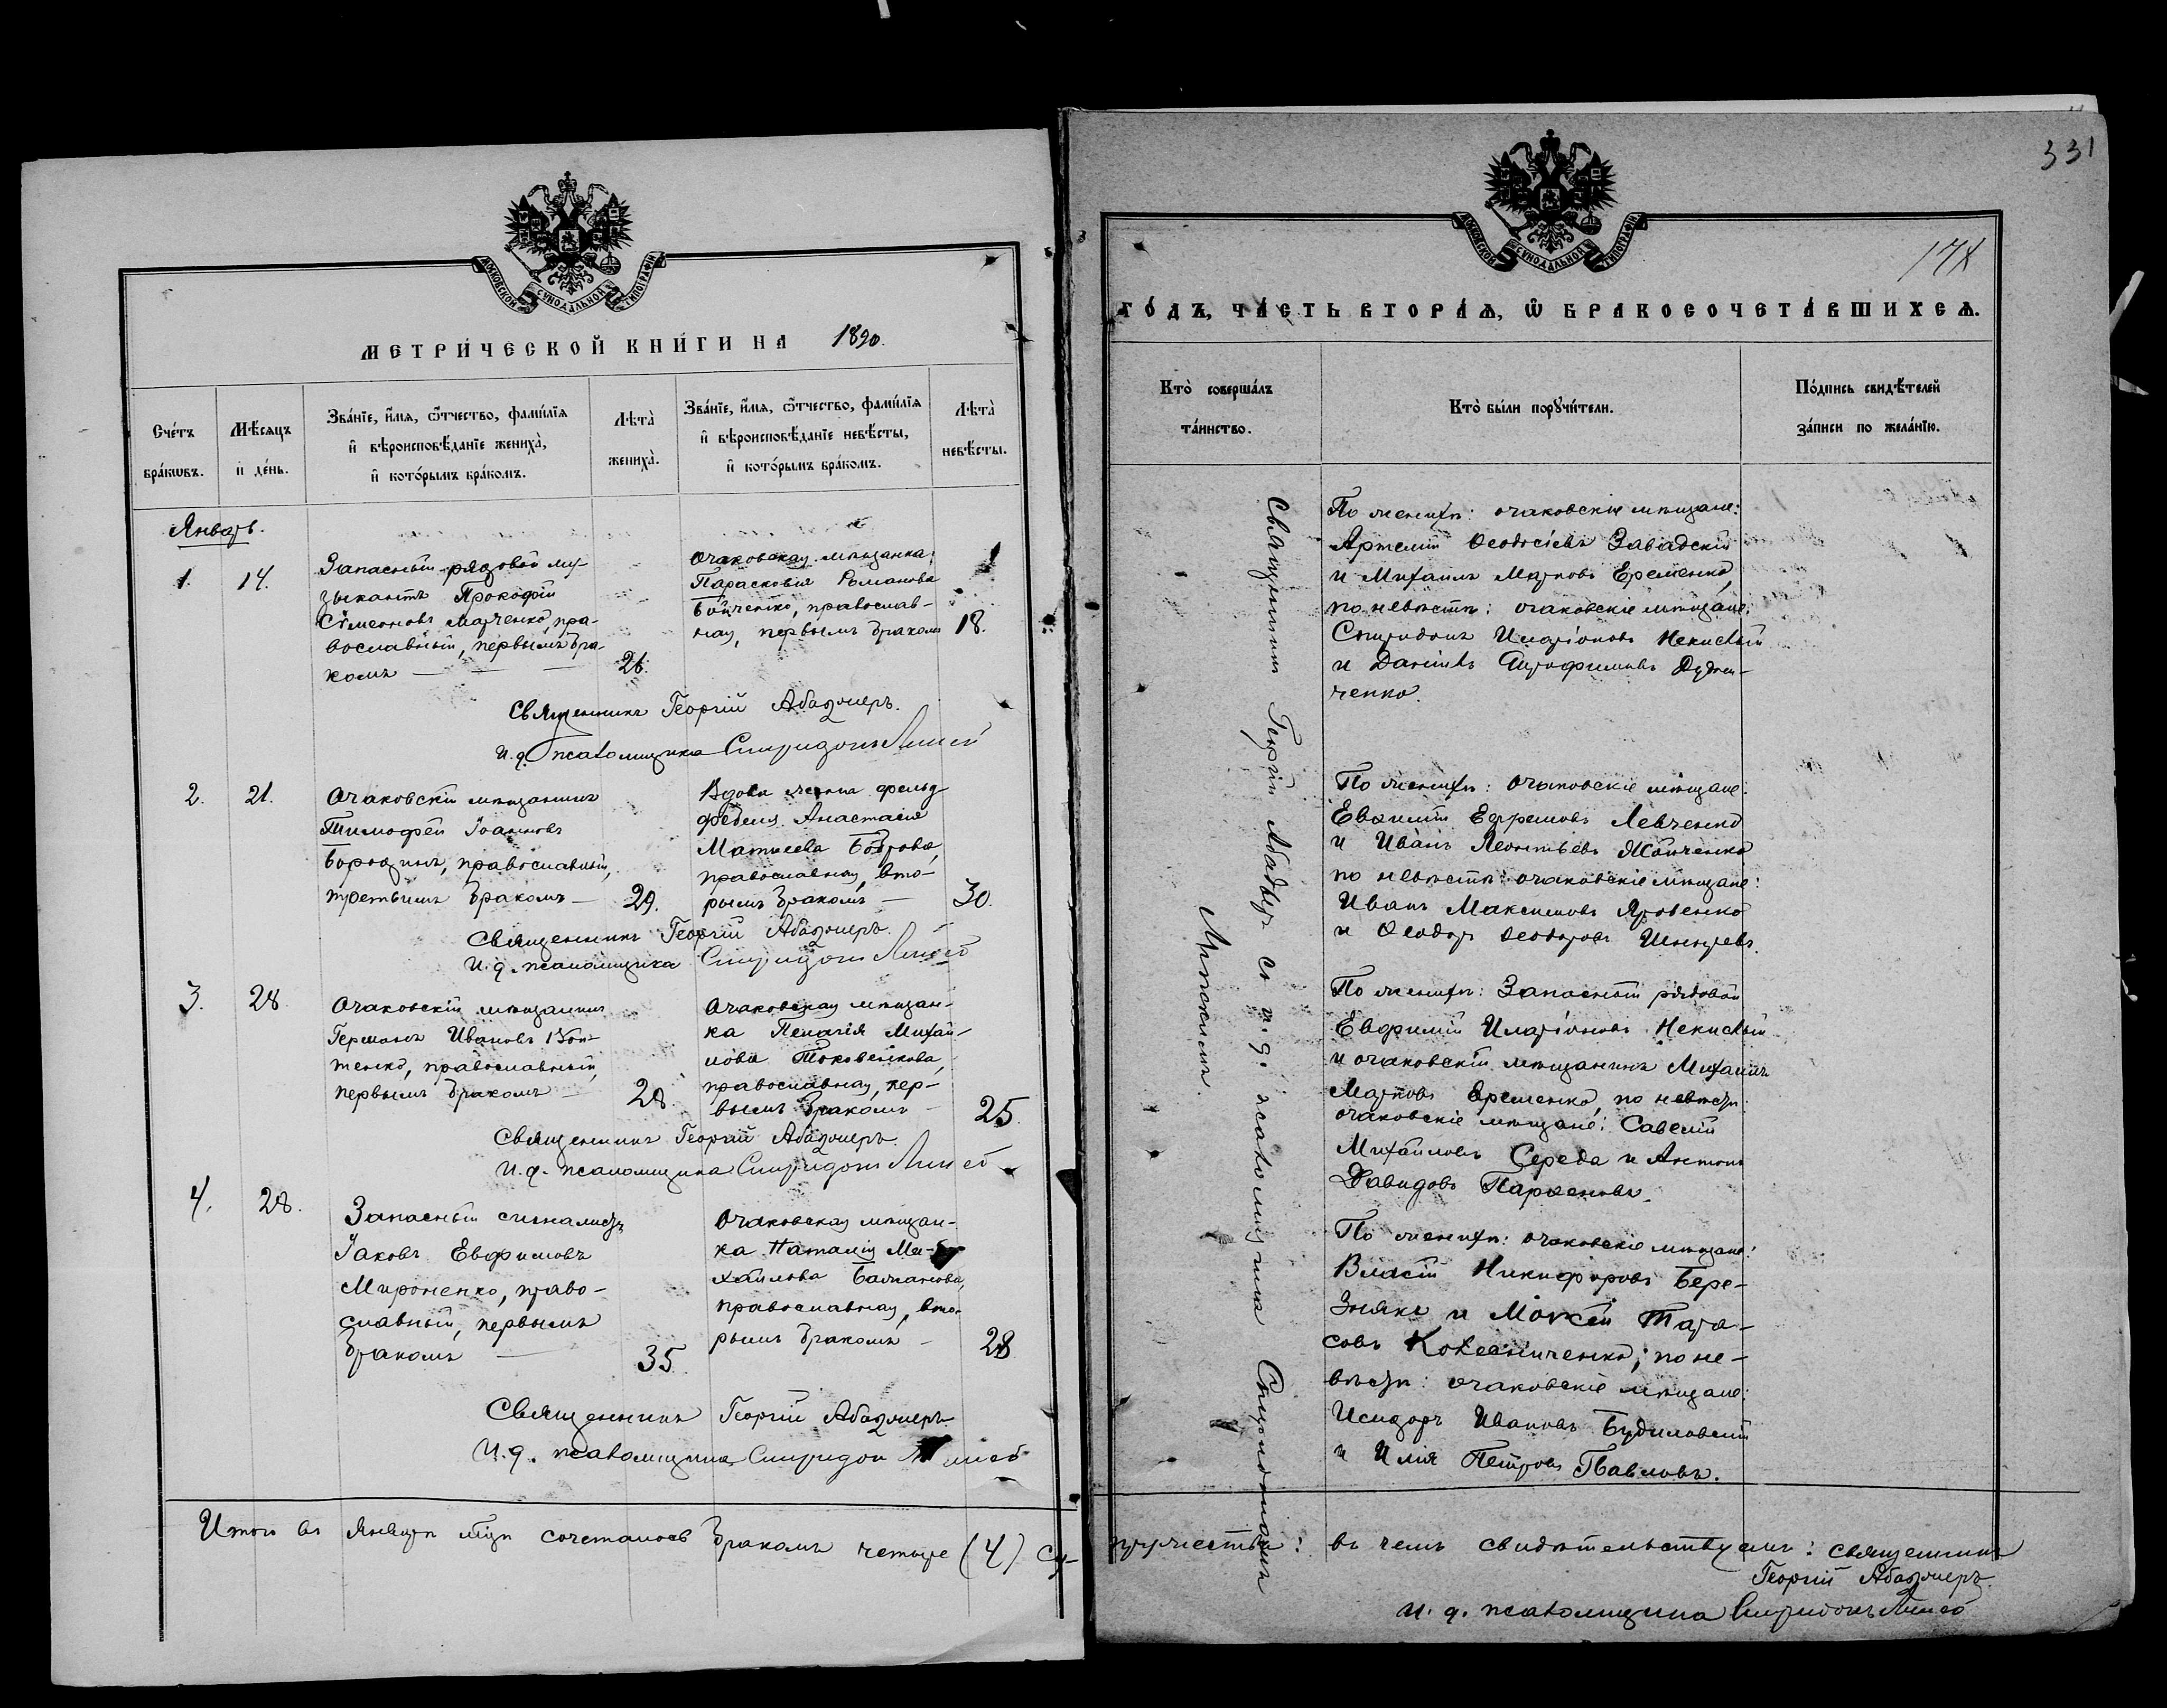 МОСКОВСКОЙ СѴНОДАЛЬНОЙ ТИПОГРАФІИ
МЕТРИ́ЧЕСКОЙ КНИ́ГИ НА 1890.
Сче́тъ бра́кωвъ.
Мѣ́сяцъ и҆ де́нь.
Зва́нїе, и҆́мѧ, ѻ҆́тчество, фами́лїѧ
и҆ вѣроисповѣ́данїе жениха̀,
и҆ кото́рымъ бра́комъ.
Лѣта̀ жениха̀.
Зва́нїе, и҆́мѧ, ѻ҆́тчество, фами́лїѧ
и҆ вѣроисповѣ́данїе невѣ́сты,
и҆ кото́рымъ бра́комъ.
Лѣта̀ невѣ́сты.
Январь.
1. 14.
Запасный рядовой му-
зыкантъ Прокофій
Сѵмеоновъ Марченко, пра-
вославный, первымъ бра-
комъ — 26.
Очаковская мѣщанка
Парасковія Романова
Бойченко, православ-
ная, первымъ бракомъ 18.
Священникъ Георгій
И. д. псаломщика Спиридонъ
2. 21.
Очаковскій мѣщанинъ
Тимофей Іоанновъ
Бородинъ, православный,
третьимъ бракомъ — 29.
Вдова жена фельд-
фебеля Анастасія
Матвеева Боброва,
православная, вто-
рымъ бракомъ — 30.
Священникъ Георгій
И. д. псаломщика Спиридонъ
3. 28
Очаковскій мѣщанинъ
Германъ Ивановъ
тенко, православный,
первымъ бракомъ — 28.
Очаковская мѣщан-
ка Пелагія Михай-
лова
православная, пер-
вымъ бракомъ — 25.
Священникъ Георгій
И. д. псаломщика Спиридонъ
4. 28.
Запасный сигналистъ
Іаковъ Евфимовъ
Мироненко, право-
славный, первымъ
бракомъ — 35.
Очаковская мѣщан-
ка Наталія Ми-
хайлова
православная, вто-
рымъ бракомъ — 28
Священникъ Георгій
И. д. псаломщика Спиридонъ
Итого въ Январѣ м-цѣ сочеталось бракомъ четыре (4) су-
331
МОСКОВСКОЙ СѴНОДАЛЬНОЙ ТИПОГРАФІИ
ГО́ДЪ, ЧА́СТЬ ВТОРА́Ѧ, Ѽ БРАКОСОЧЕТА́ВШИХСѦ.
Кто̀ соверша́лъ
та́инство.
Кто̀ бы́ли порꙋчи́тели.
По́дпись свидѣ́телей
за́писи по жела́нїю.
Священникъ Георгій съ и. д. псаломщика Спиридономъ
По женихѣ: очаковскіе мѣщане:
Артемій Ѳеодосіевъ Завадскій
и Михаилъ Марковъ Еременко,
по невѣстѣ: очаковскіе мѣщане:
Спиридонъ Иларіоновъ
и Даніилъ Трофимовъ
ченко.
По женихѣ: Очаковскіе мѣщане:
Ефремовъ Левченко
и Иванъ Леонтьевъ
по невѣстѣ: очаковскіе мѣщане:
Иванъ Максимовъ Яровенко
и Ѳеодоръ Ѳеодоровъ
По женихѣ: Запасный рядовой
Евфимій Иларіоновъ
и очаковскій мѣщанинъ Михаилъ
Марковъ Еременко, по невѣстѣ:
очаковскіе мѣщане: Савелій
Михайловъ Середа и Антонъ
Давидовъ
По женихѣ: очаковскіе мѣщане:
Власій Никифоровъ Бере-
и Моисей Тара-
совъ по не-
вѣстѣ: очаковскіе мѣщане:
Исидоръ Ивановъ Будиловскій
и Илія Петровъ Павловъ.
пружествъ: въ чемъ свидѣтельствуемъ: священникъ
Георгій
И. д. псаломщика Спиридонъ